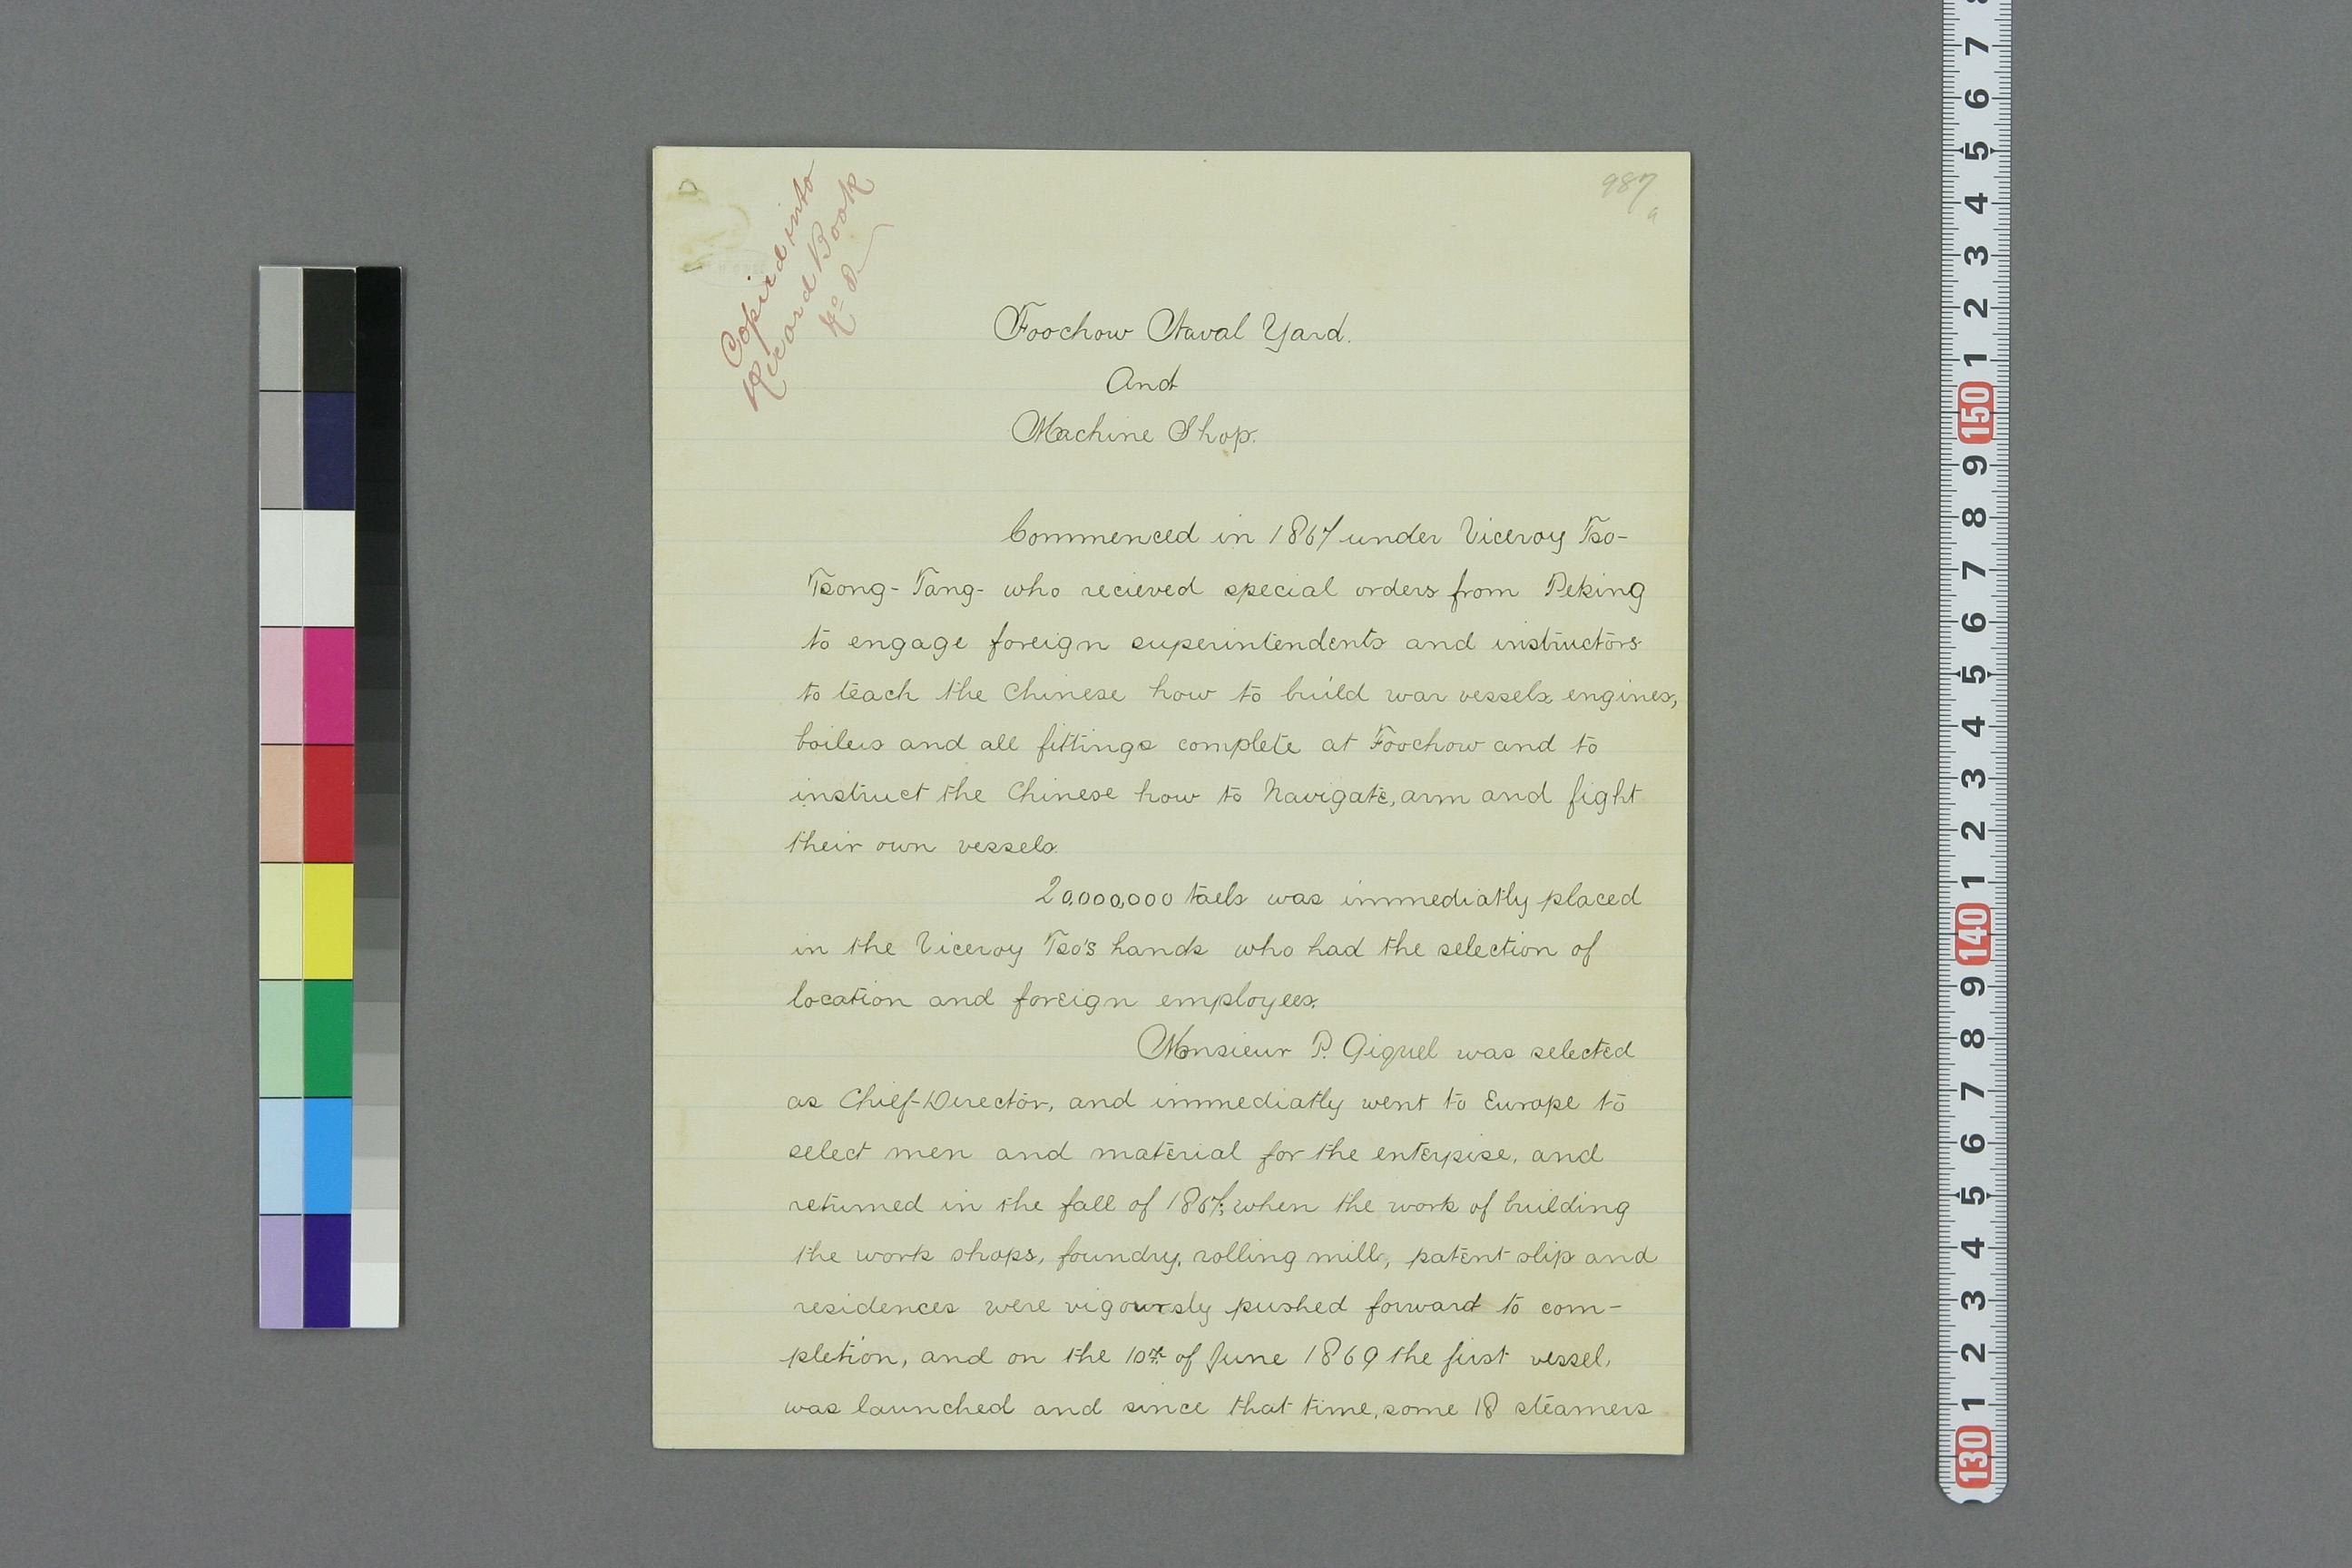 987
a
Copied into
Record Book
No 8
Foochow Naval Yard.
And
Machine Shop.
Commenced in 1867 under Viceroy Tso-
Tsong-Tang- who recieved special orders from Peking
to engage foreign superintendents and instructors
to teach the Chinese how to build war vessels, engines,
boilers and all fittings complete at Foochow and to
instruct the Chinese how to Navigate, arm and fight
their own vessels.
20,000,000 taels was immediatly placed
in the Viceroy Tso's hands who had the selection of
location and foreign employees.
Monsieur P. Giquel was selected
as Chief-Director, and immediatly went to Europe to
select men and material for the enterpise, and
returned in the fall of 1867, when the work of building
the work shops, foundry, rolling mill, patent slip and
residences were vigoursly pushed forward to com-
pletion, and on the 10th of June 1869 the first vessel,
was launched and since that time, some 18 steamers
7
6
5
4
3
2
1
150
9
8
7
6
5
4
3
2
1
140
9
8
7
6
5
4
3
2
1
130